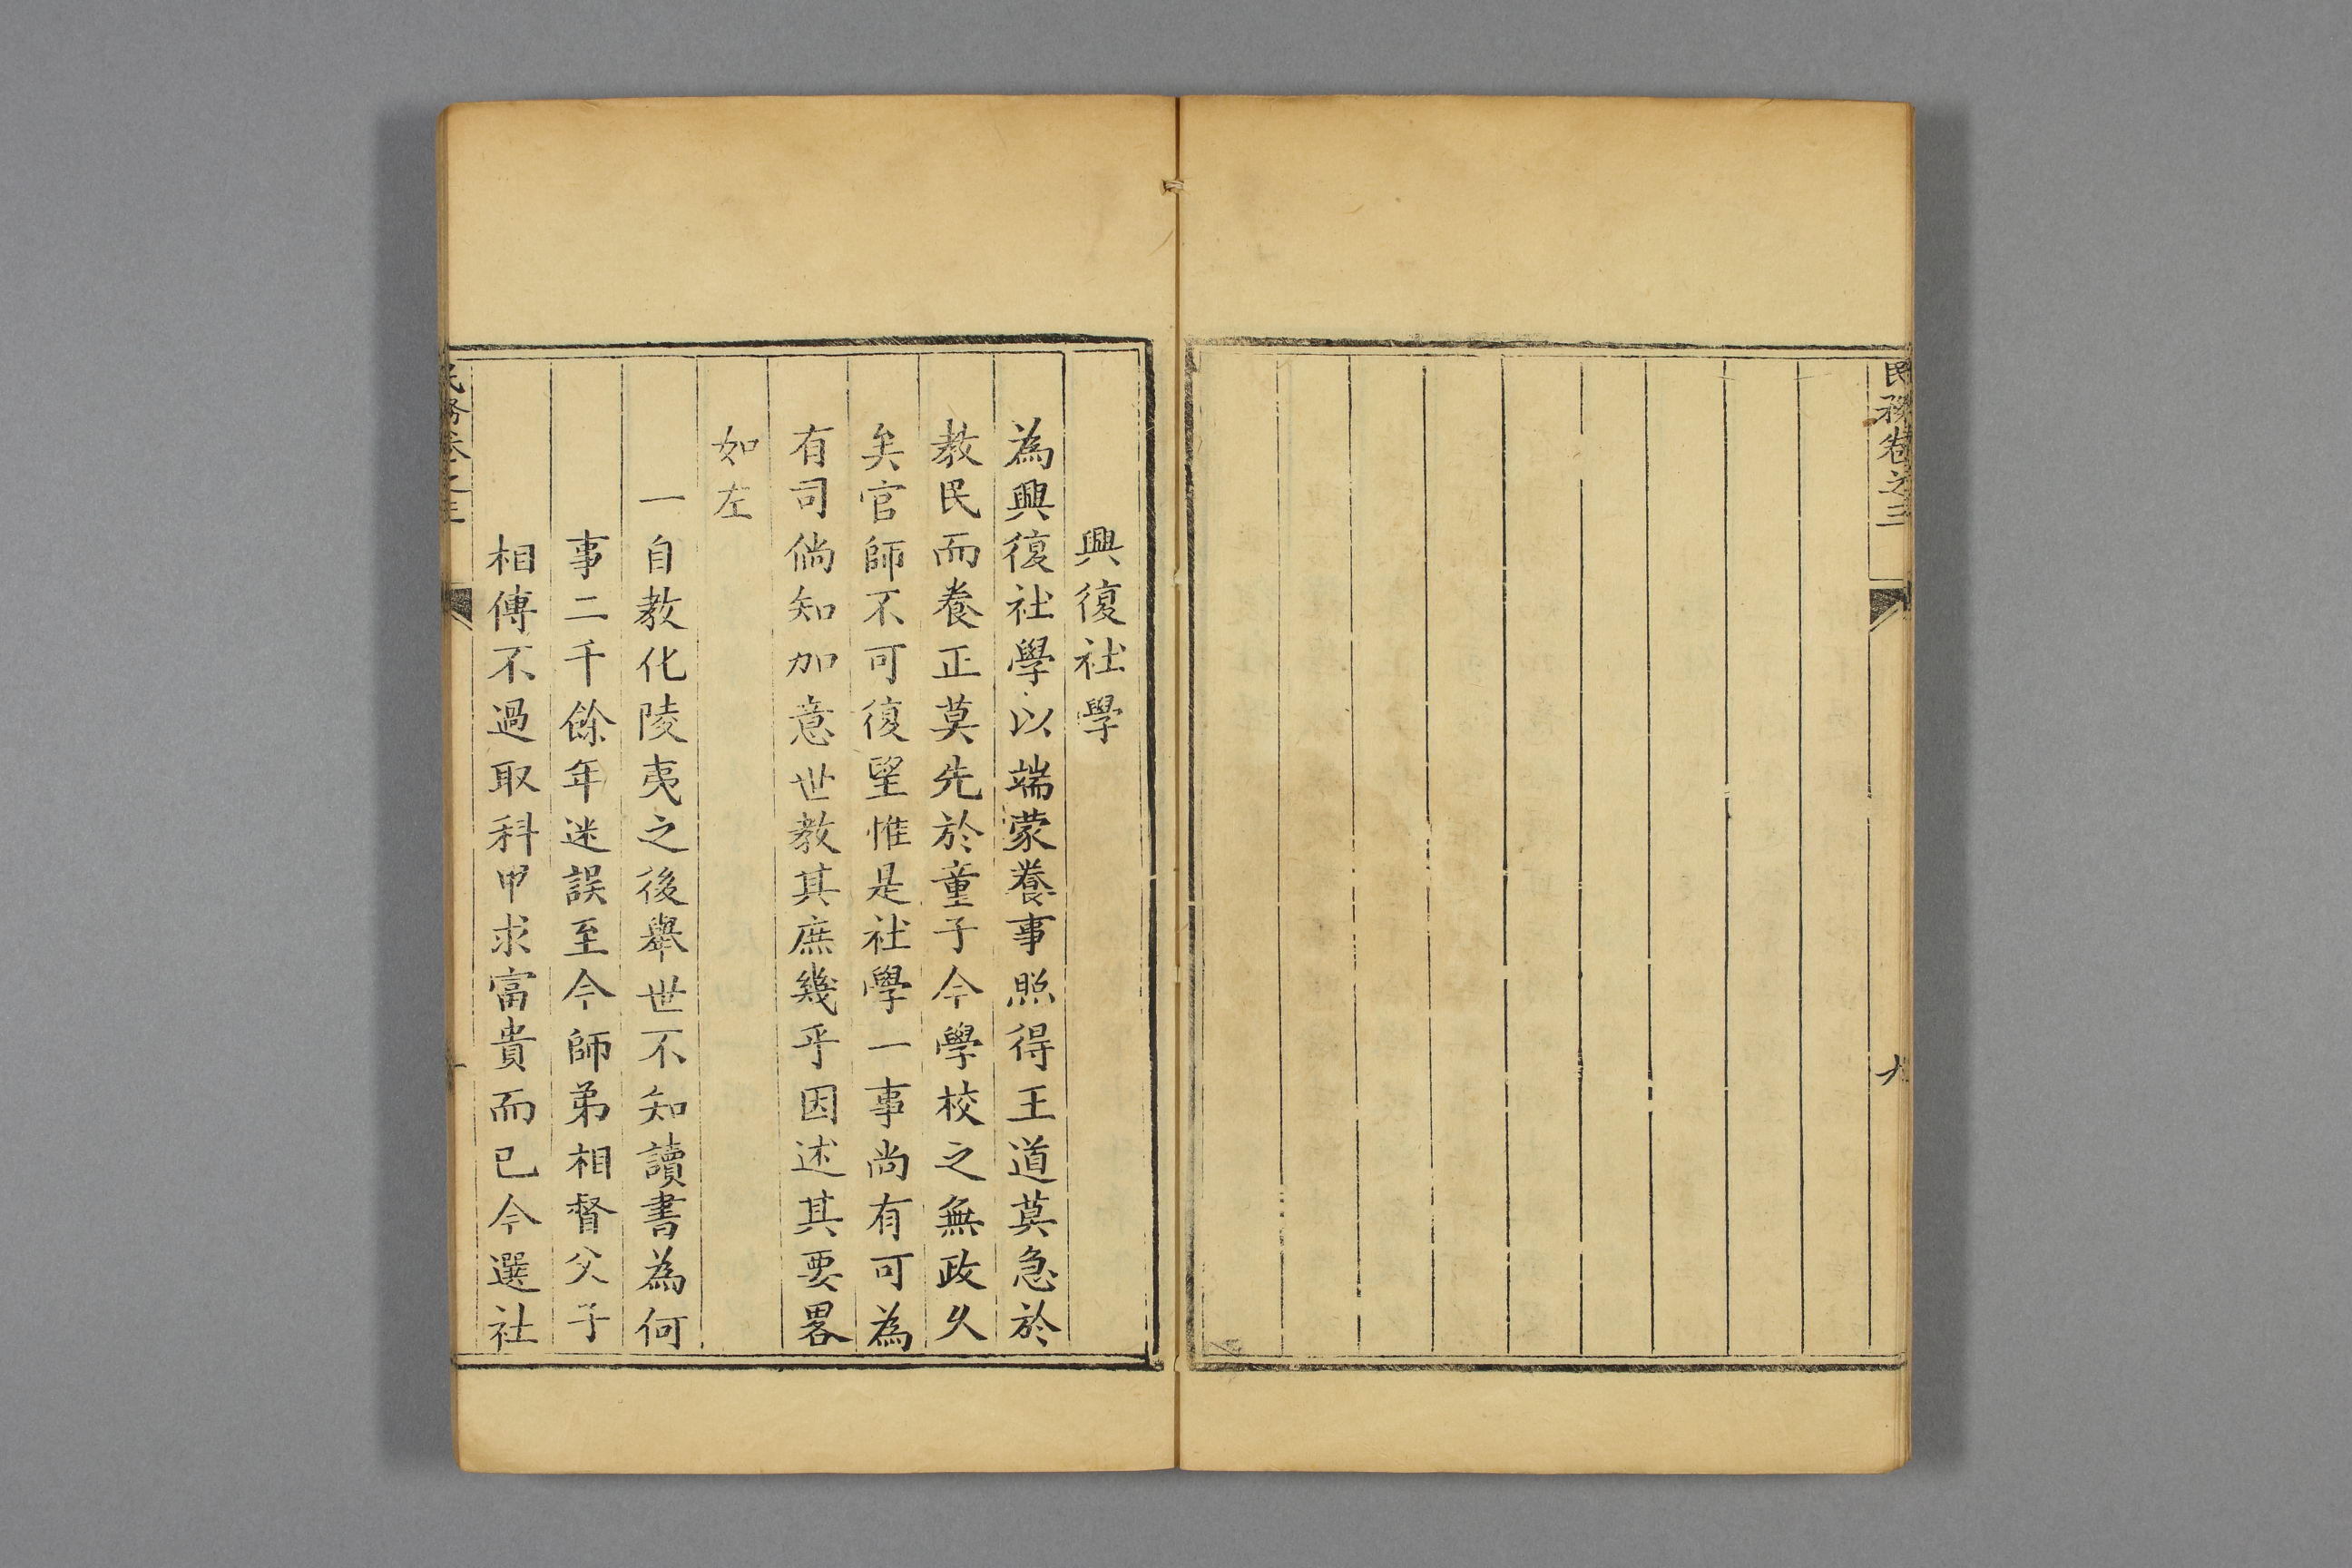 民務卷之三
興復社學
為興復社學以端蒙養事照得王道莫急於
教民而養正莫先於童子今學校之無政久
矣官師不可復望惟是社學一事尚有可為
有司倘知加意世教其庶幾乎因述其要畧
如左
一自教化陵夷之後舉世不知讀書為何
事二千餘年迷誤至今師弟相督父子
相傳不過取科甲求富貴而已今選社
民務卷之三